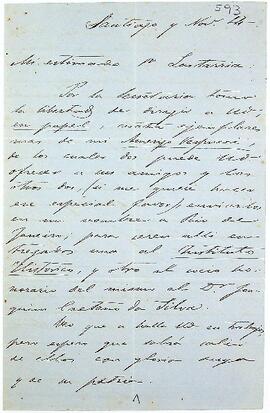 593
Santiago y Nov. 24
Mi estimado Sr Lastarria:
Por la Secretaría tomo
la libertad de dirigir a Ud.
en papel, ejemplares
mas de mi Amerigo Vespucci
de los cuales dos puede Ud.
ofrecer a sus amigos y los
otros dos, si me quiere hacer
ese especial favor, enviarlos
en mi nombre a Rio de
Janeiro; para ser allí en
tregados uno al Instituto
Historico, y otro al socio ho
norario del mismo el Dr. Joa
quim Caetano da Silva.
Veo que a halla Ud en trabajos
pero espero que saldrá
de ellos con gloria suya
y de su patria.